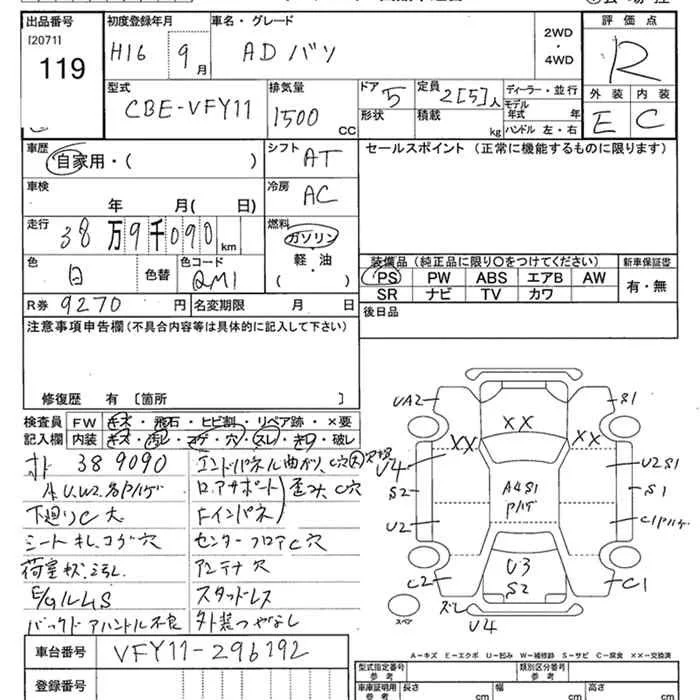 出品番号 初度登録年月 車名・グレード 評価点
[2071] H16 9月 ADバン 2WD・4WD R
119
型式 排気量 ドア形状 定員 ディーラー・並行 外装 内装
CBE-VFY11 1500 CC 5 2[5]人 モデル年式 年 E C
積載 kg ハンドル 左・右
車歴 シフト セールスポイント(正常に機能するものに限ります)
自家用・( ) AT
車検 年 月( 日) 冷房 AC
走行 38万9千090km 燃料 ガソリン
軽油
( )
装備品(純正品に限り○をつけてください) 新車保証書
色 白 色替 色コード QM1
PS PW ABS エアB AW 有・無
SR ナビ TV カワ
R券 9270円 名変期限 月 日 後日品
注意事項申告欄(不具合内容等は具体的に記入して下さい)
修復歴 有〔箇所 〕
検査員 FW キズ・飛石・ヒビ割・リペア跡・×要
記入欄 内装 キズ・汚レ・コゲ・穴・スレ・キレ・破レ
389090
下廻りC大
シート キレ コゲ穴
センターフロアC穴
アンテナ穴
スタッドレス
バックドアハンドル不良 外装つやなし
UA2 S1
XX
XX XX
U4 U2S1
S2 A4S1 S1
U2
U3
C2 S2 C1
ズレ
スペア U4
A-キズ E-エクボ U-凹み W-補修跡 S-サビ C-腐食 XX-交換済
車台番号 VFY11-296192
型式指定番号 参考 類別区分番号 参考
登録番号 車庫証明用 参考 長さ cm 幅 cm 高さ cm